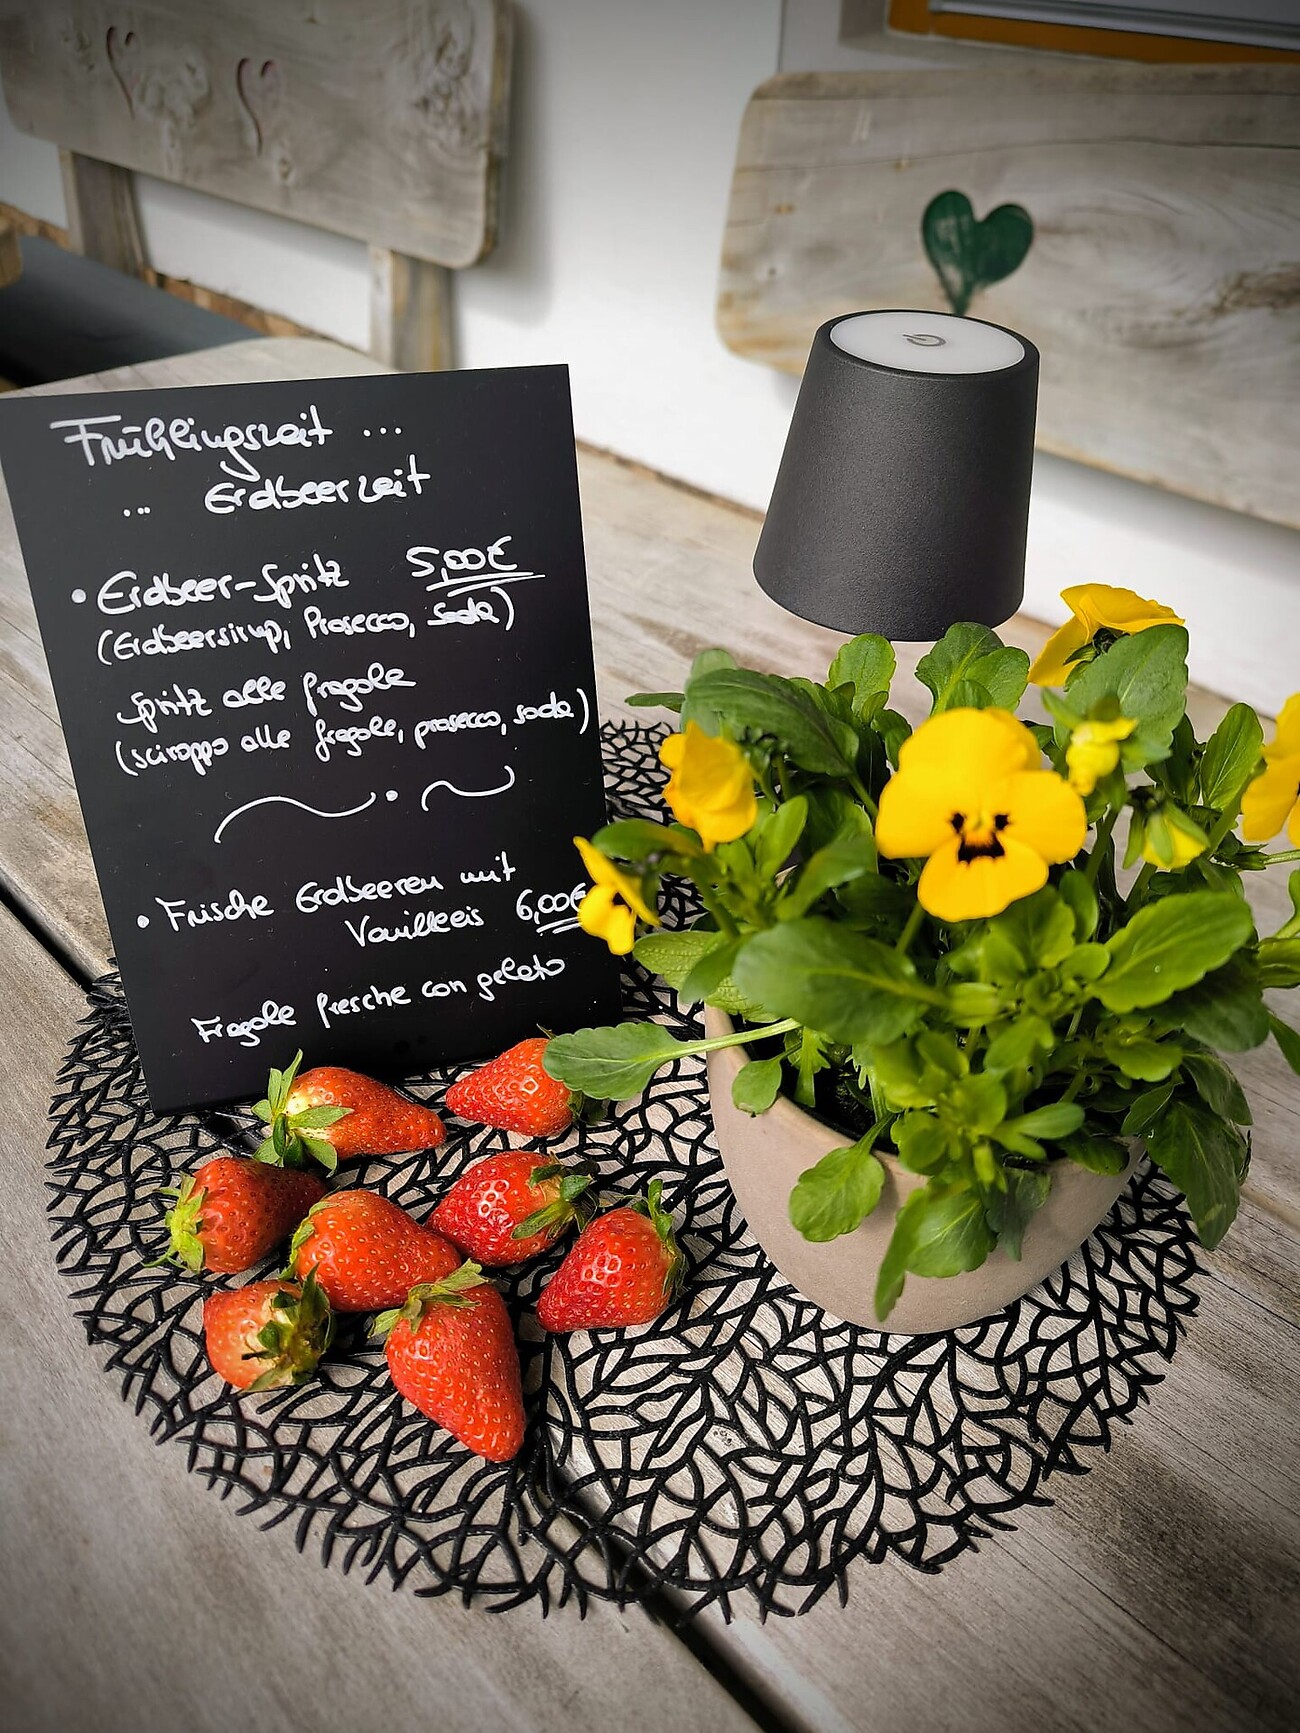 Frühlingszeit ...
... Erdbeerzeit
• Erdbeer-Spritz 5,00€
(Erdbeersirup, Prosecco, Soda)
Spritz alle fragole
(sciroppo alle fragole, prosecco, soda)
• Frische Erdbeeren mit
Vanilleeis 6,00€
Fragole fresche con gelato